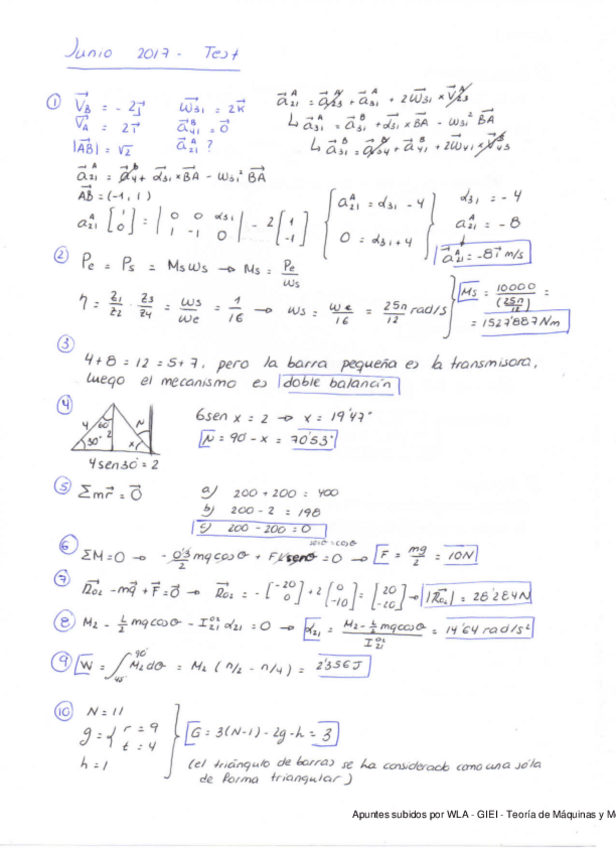 Junio 2017 - Test
① V⃗_B = -2j⃗   ω⃗_31 = 2k⃗   a⃗_21^A = a⃗_23^A + a⃗_31^A + 2ω⃗_31 × V⃗_23^A
V⃗_A = 2i⃗   a⃗_41^B = 0⃗   ↳ a⃗_31^A = a⃗_31^B + α⃗_31 × BA⃗ - ω_31² BA⃗
|AB⃗| = √2   a⃗_21^A ?   ↳ a⃗_31^B = a⃗_34^B + a⃗_41^B + 2ω⃗_41 × V⃗_34^B
AB⃗ = (-1, 1)
a_21^A [1 0] = | 0 0 α_31 1 -1 0 | - 2 [1 -1]   { a_21^A = α_31 - 4   0 = α_31 + 4 }   α_31 = -4   a_21^A = -8
a⃗_21^A = -8i⃗ m/s
② P_e = P_s = M_s ω_s → M_s = P_e/ω_s
η = Z_1/Z_2 · Z_3/Z_4 = ω_s/ω_e = 1/16 → ω_s = ω_e/16 = 25π/12 rad/s   M_s = 10000/(25π/12) =
= 1527'887 Nm
③
4+8 = 12 = 5+7, pero la barra pequeña es la transmisora,
luego el mecanismo es doble balancín
④ 4 60° 30° 2 N x   6 sen x = 2 → x = 19'47°
N = 90 - x = 70'53°
4 sen 30 = 2
⑤ Σmr⃗ = 0⃗   a) 200 + 200 = 400
b) 200 - 2 = 198
c) 200 - 200 = 0
senθ = cosθ
⑥ ΣM = 0 → - 0'3/2 mg cosθ + F l senθ = 0 → F = mg/2 = 10N
⑦ R⃗_02 - mg⃗ + F⃗ = 0⃗ → R⃗_02 = - [-20 0] + 2 [0 -10] = [20 -20] → |R⃗_02| = 28'284N
⑧ M_2 - L/2 mg cosθ - I_21^02 α_21 = 0 → α_21 = (M_2 - L/2 mg cosθ)/I_21^02 = 14'64 rad/s²
⑨ W = ∫_45°^90° M_2 dθ = M_2 (π/2 - π/4) = 2'356 J
⑩ N = 11
g = { r = 9 t = 4   G = 3(N-1) - 2g - h = 3
h = 1   (el triángulo de barras se ha considerado como una sóla
de forma triangular)
Apuntes subidos por WLA - GIEI - Teoría de Máquinas y M